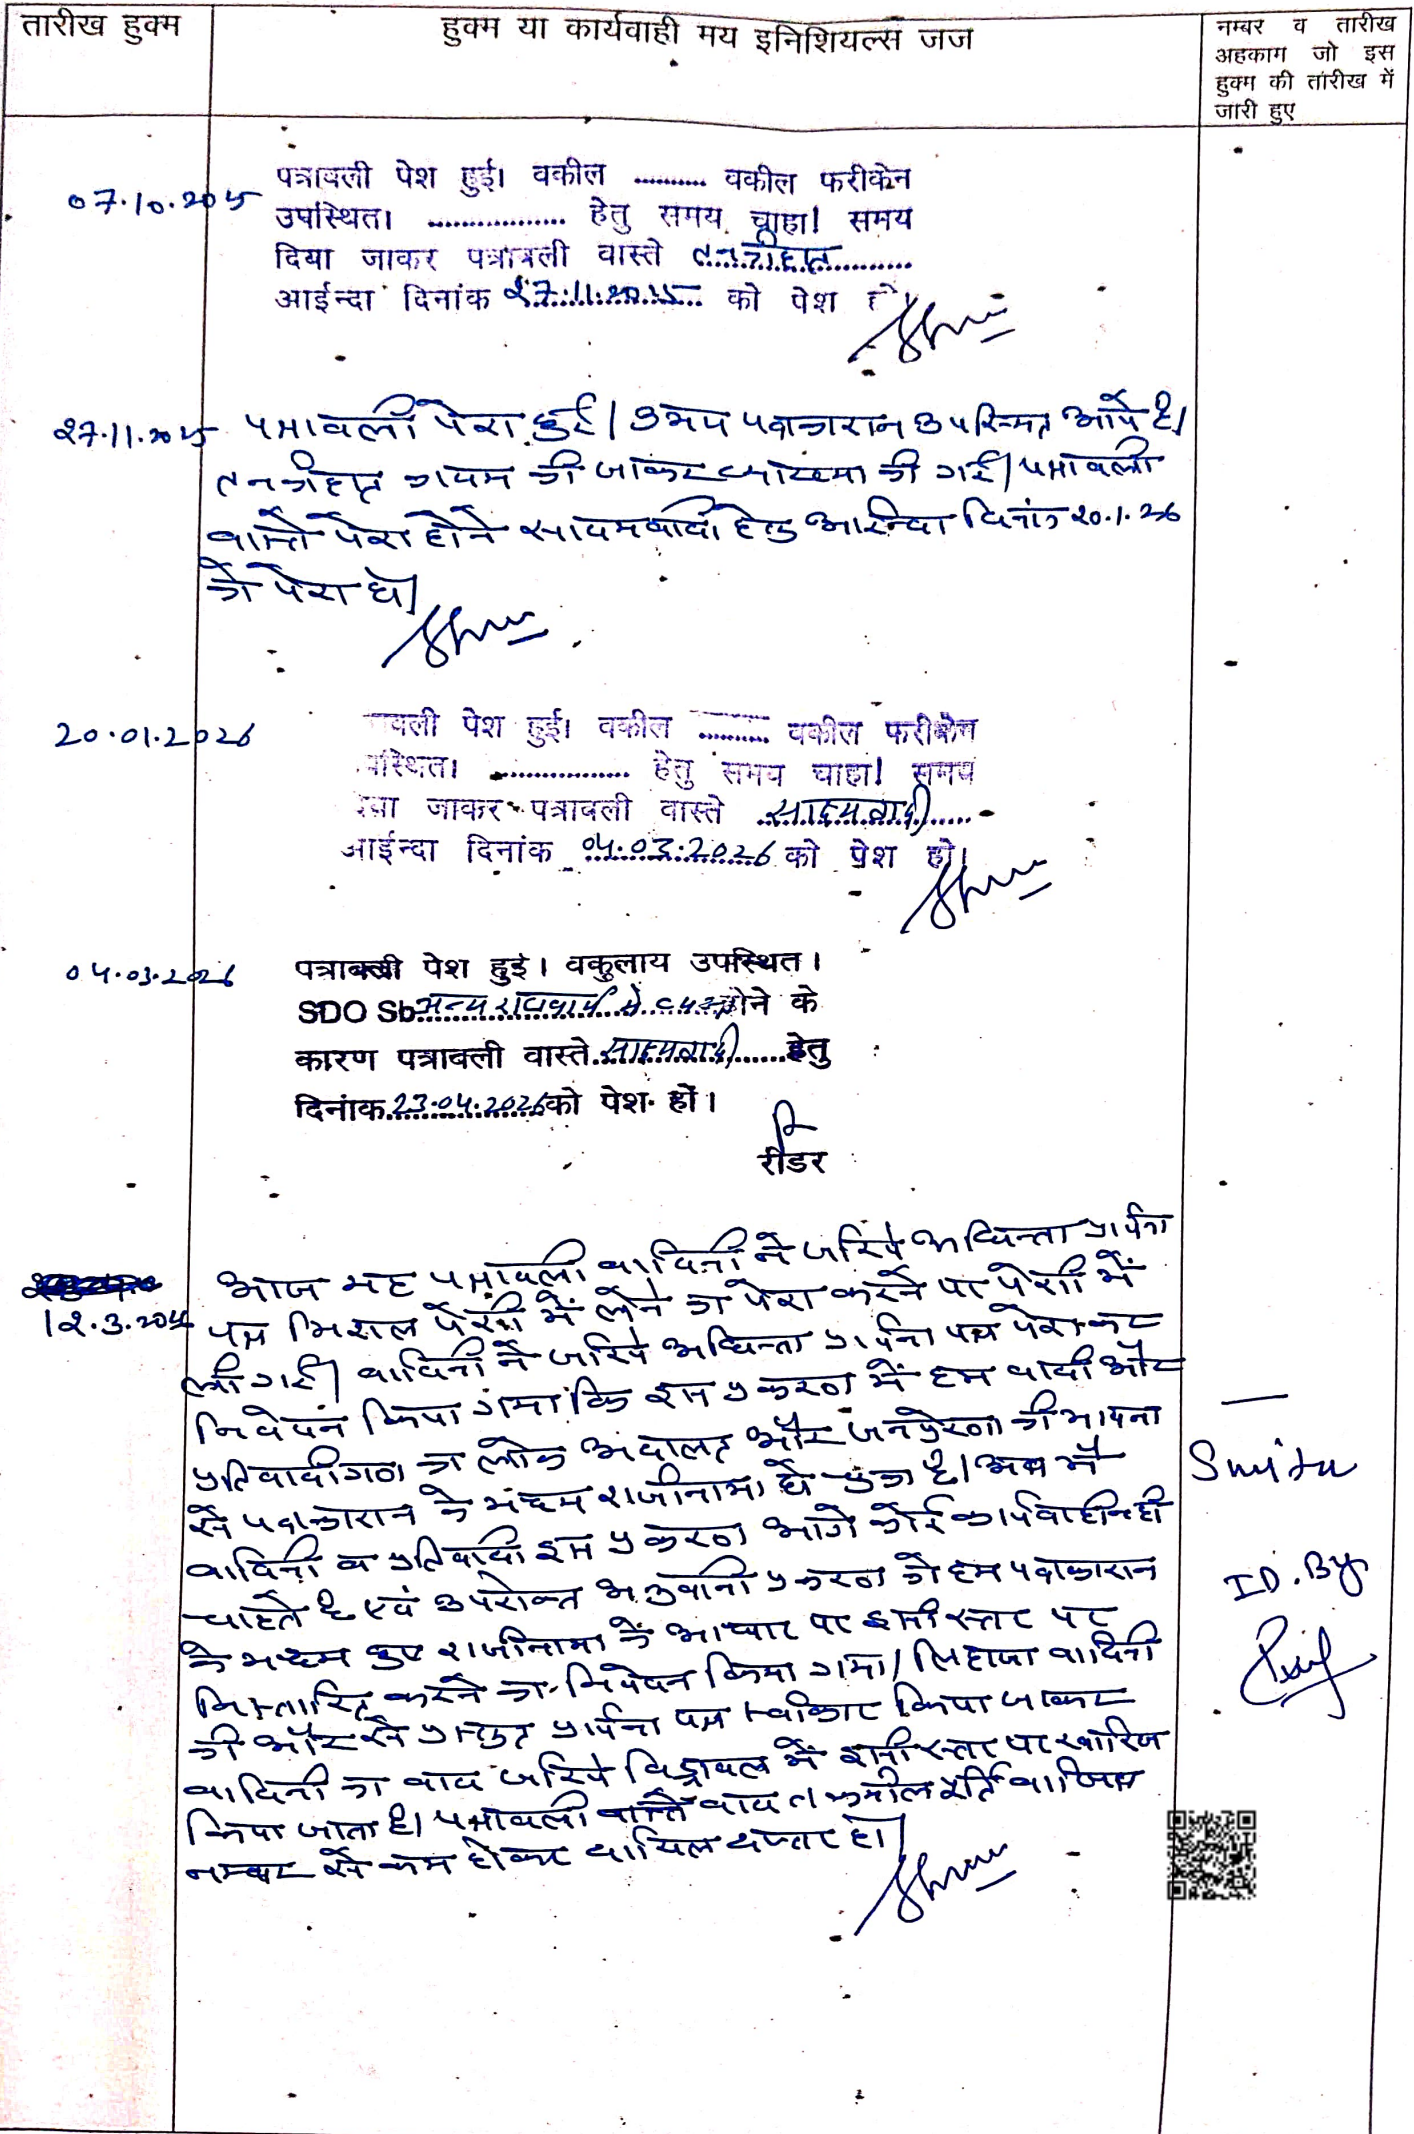 तारीख हुक्म
हुक्म या कार्यवाही मय इनिशियल्स जज
नम्बर व तारीख
अहकाम जो इस
हुक्म की तारीख में
जारी हुए
07.10.2025
पत्रावली पेश हुई। वकील .......... वकील फरीकेन
उपस्थित। .................. हेतु समय चाहा। समय
दिया जाकर पत्रावली वास्ते तनकीहात
आईन्दा दिनांक 27.11.2025 को पेश हो।
27.11.2025 पत्रावली पेश हुई। उभय पक्षकारान उपस्थित आये है।
तनकीहात कायम की जाकर व्याख्या की गई। पत्रावली
वास्ते पेश होने साक्ष्यवादी हेतु आईन्दा दिनांक 20.1.26
को पेश हो।
20.01.2026
त्रावली पेश हुई। वकील .......... वकील फरीकेन
उपस्थित। .................. हेतु समय चाहा। समय
दिया जाकर पत्रावली वास्ते साक्ष्यवादी
आईन्दा दिनांक 04.03.2026 को पेश हो।
04.03.2026
पत्रावली पेश हुई। वकुलाय उपस्थित।
SDO Sb अन्य राजकार्य में व्यस्त होने के
कारण पत्रावली वास्ते साक्ष्यवादी हेतु
दिनांक 23.04.2026 को पेश हों।
रीडर
आज यह पत्रावली वादिनी ने जरिये अधिवक्ता प्रार्थना
12.3.2026 पत्र मिशल पेशी में लेने का पेश करने पर पेशी में
ली गई। वादिनी ने जरिये अधिवक्ता प्रार्थना पत्र पेश कर
निवेदन किया गया कि इस प्रकरण में हम वादी और
प्रतिवादीगण का लोक अदालत और जनप्रेरणा की भावना
से पक्षकारान के मध्य राजीनामा हो चुका है। अब मैं
वादिनी व प्रतिवादी इस प्रकरण आगे कोई कार्यवाही नही
चाहते है एवं उपरोक्त अनुवानी प्रकरण को हम पक्षकारान
के मध्य हुए राजीनामा के आधार पर इसी स्तर पर
निस्तारित करने का निवेदन किया गया। लिहाजा वादिनी
की और से प्रस्तुत प्रार्थना पत्र स्वीकार किया जाकर
वादिनी का वाद जरिये विड्रावल में इसी स्तर पर खारिज
किया जाता है। पत्रावली वास्ते वाद तकमील पूर्ति
नम्बर से कम होकर दाखिल दफ्तर हो।
Smita
ID. By